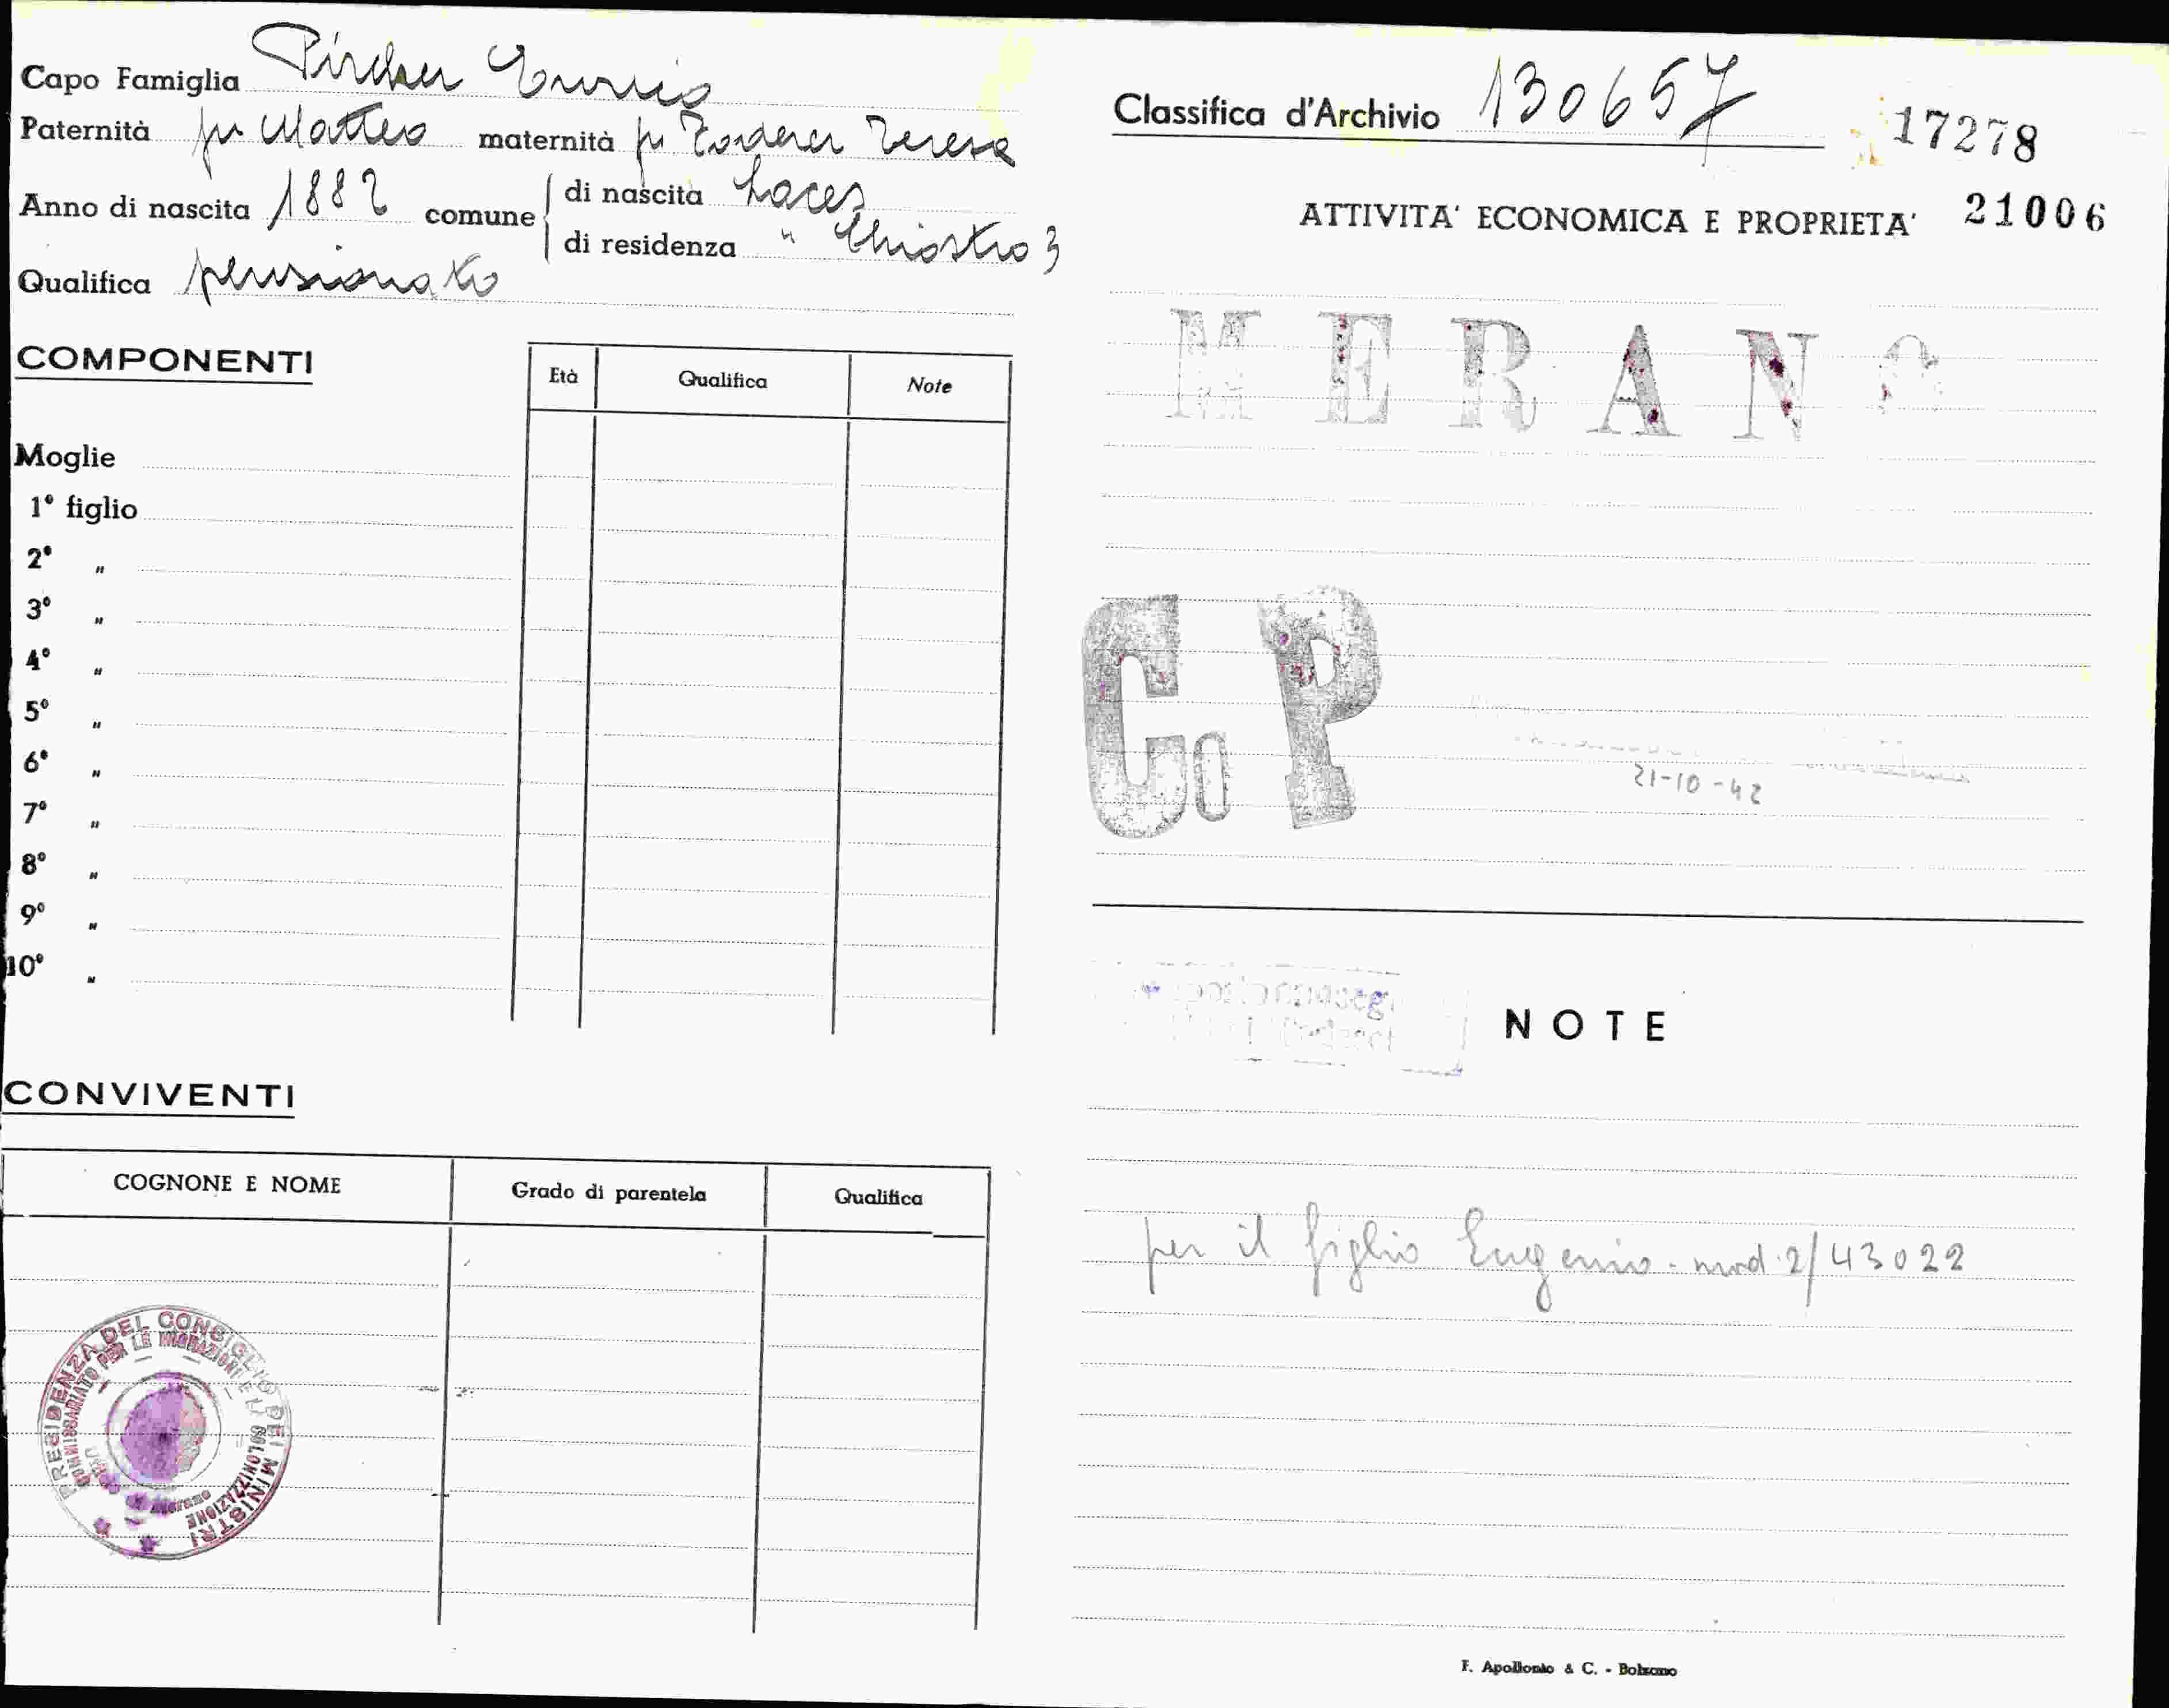 Capo Famiglia Pircher Ennio
Paternità fu Matteo maternità fu Teresa
Anno di nascita 1882 comune di nascita Laces
di residenza " Chiostro 3
Qualifica pensionato
COMPONENTI
Età Qualifica Note
Moglie
1º figlio
2º "
3º "
4º "
5º "
6º "
7º "
8º "
9º "
10º "
CONVIVENTI
COGNONE E NOME Grado di parentela Qualifica
PRESIDENZA DEL CONSIGLIO DEI MINISTRI
COMMISSARIATO PER LE MIGRAZIONI E LA COLONIZZAZIONE
Classifica d'Archivio 130657
17278
ATTIVITA' ECONOMICA E PROPRIETA' 21006
MERANO
Co P
21-10-42
NOTE
per il figlio Eugenio - mod. 2/43022
F. Apollonio & C. - Bolzano